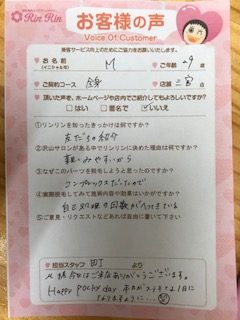 Rin Rin
お客様の声
Voice Of Customer
接客サービス向上のためにご協力をお願いいたします。
お名前
(イニシャル可)
M
ご年齢
29
歳
ご契約コース
全身
店舗
三宮
店
頂いた声を、ホームページや店内でご紹介してもよろしいですか?
□はい □匿名で ☑いいえ
①リンリンを知ったきっかけは何ですか?
友だちの紹介
②沢山サロンがある中でリンリンに決めた理由は何ですか?
親しみやすいから
③なぜこのパーツを脱毛しようと思ったのですか?
コンプレックスだったので
④実際脱毛してみて施術内容や効果はいかがですか?
自己処理の回数がへってきている
⑤ご意見・リクエストなどあれば自由に書いて下さい
担当スタッフ
より
M様 今日はご来店ありがとうございます。
Happy pocky day 本日がステキな1日に
なりますように…